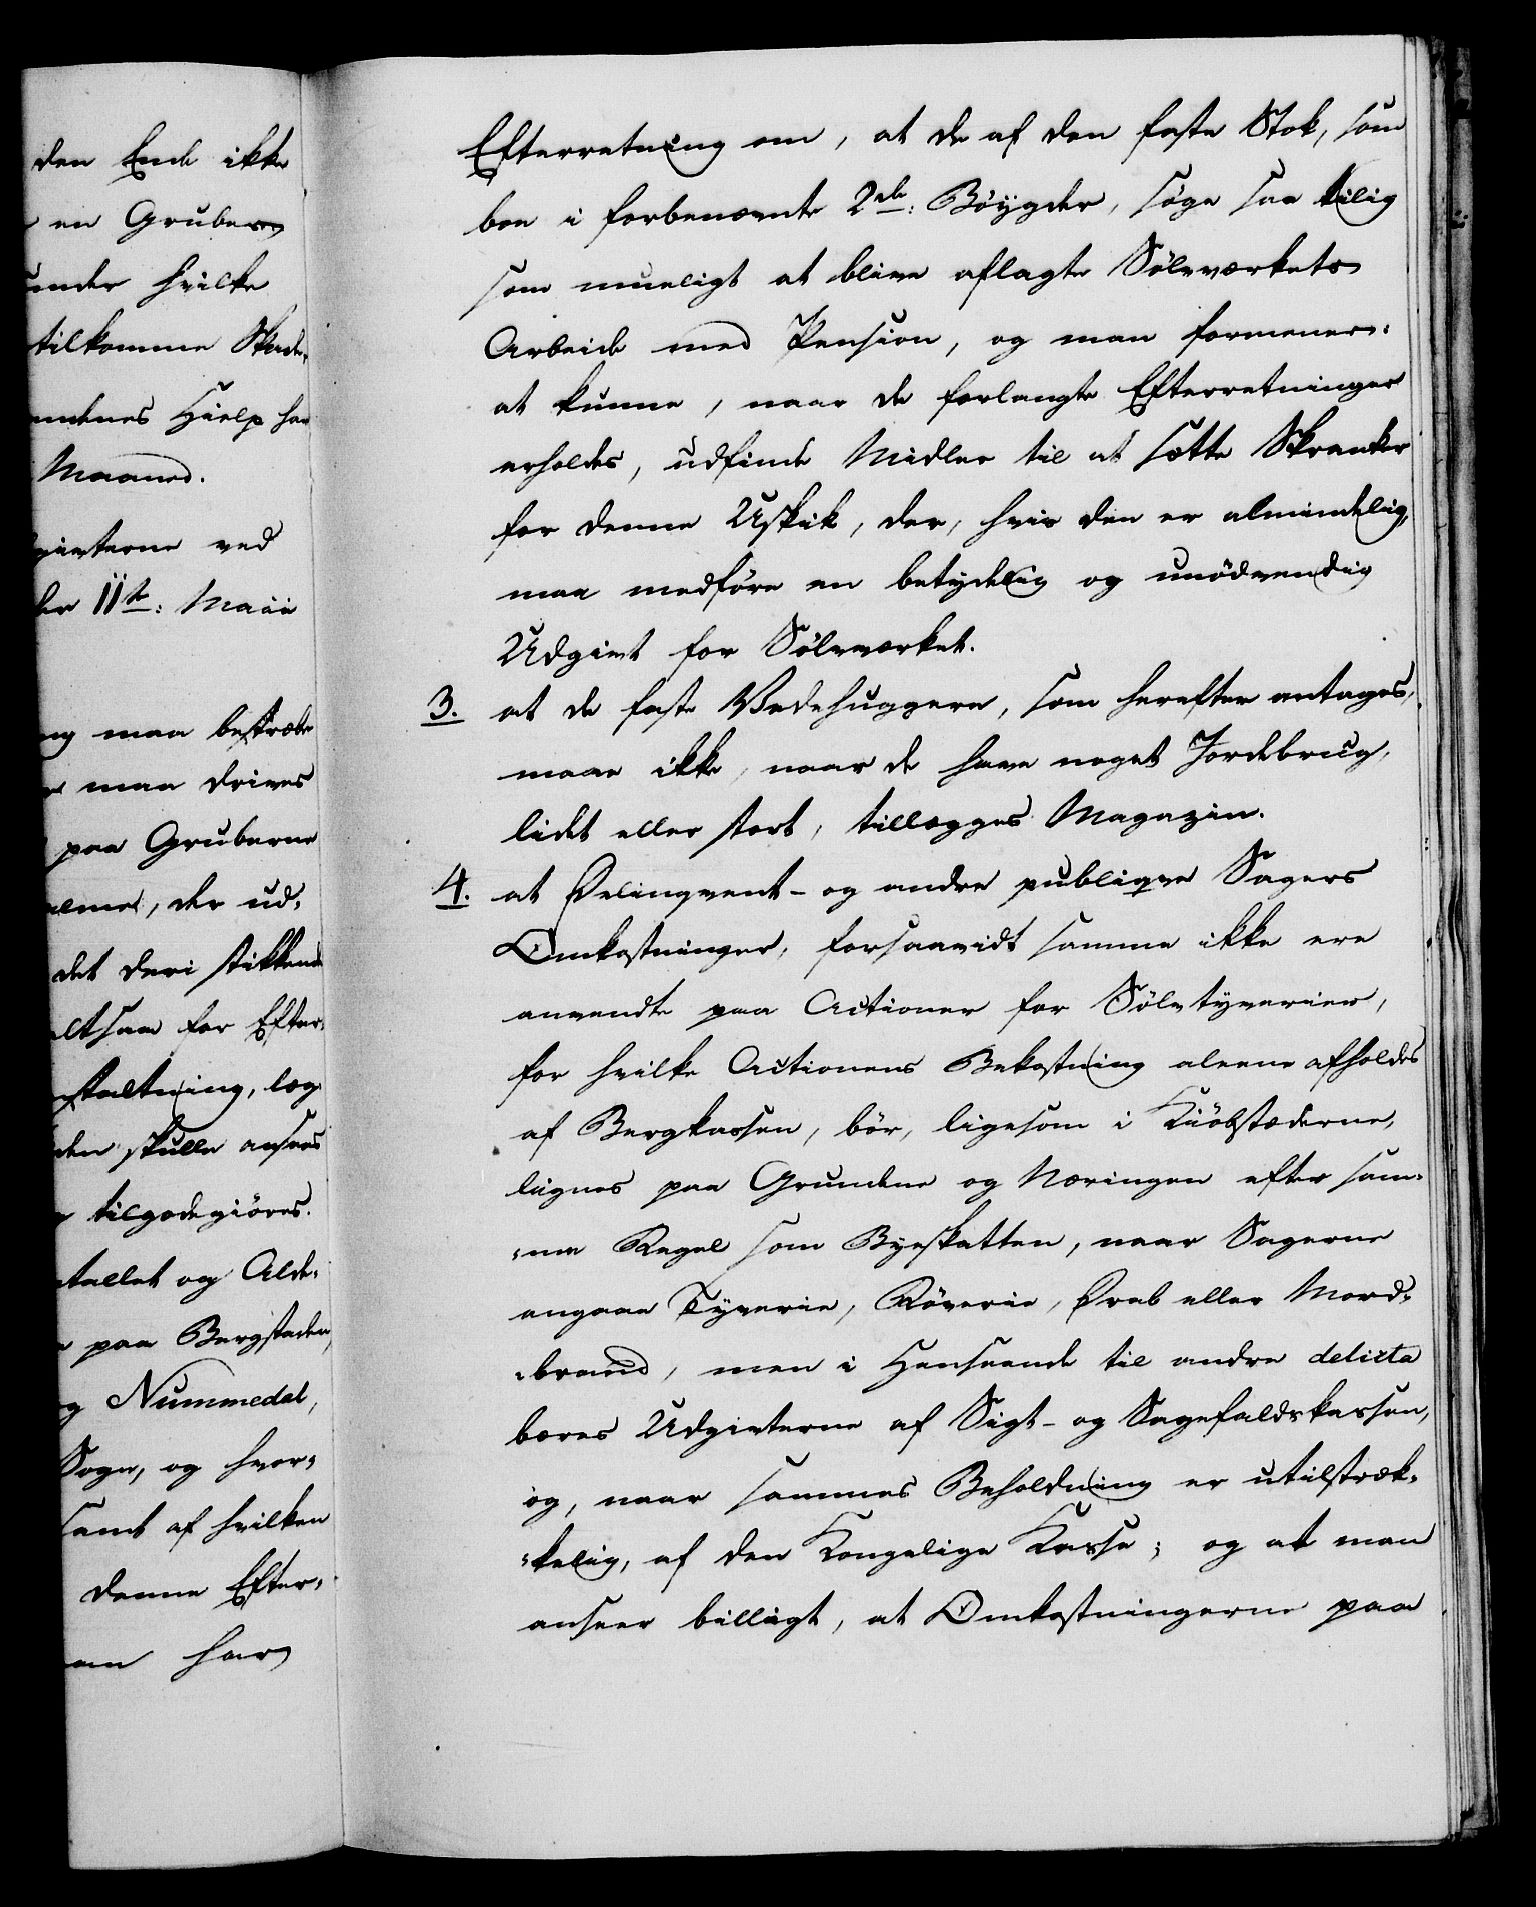 den Ende ikke
en Grubers
under hvilke
tilkomme Skade,
andenes Hielp har
Maaned.
givterne ved
der 11te: Maii
ng maa bestræbe
maa drives
paa Gruberne
alme, der ud,
det deri stikkende
altsaa for Efter,
staltning, læg
den skulle ansees
tilgodegiöres.
tallet og Alde,
paa Bergstaden,
og Nummedal,
Sogn, og hvor,
samt af hvilken
denne Efter,
an har
Efterretning om, at de af den faste Stok, som
boe i forbenævnte 2de: Böygder, söge saa tilig
som mueligt at blive aflagte Sölvværkets
Arbeide med Pension, og man formener
at kunne, naar de forlangte Efterretninger
erholdes, udfinde Midler til at sætte Skranker
for denne Uskik, der, hvis den er almindelig,
maa medföre en betydelig og unödvendig
Udgivt for Sölvværket.
3. at de faste Vedehuggere, som herefter antages,
maae ikke, naar de have noget Jordebrug,
lidet eller stort, tillægges Magazin.
4. at Delinqvent- og andre publiqve Sagers
Omkostninger, forsaavidt samme ikke ere
anvendte paa Actioner for Sölvtyverier,
for hvilke Actionens Bekostning aleene afholdes
af Bergkassen, bör, ligesom i Kiöbstæderne,
lignes paa Grundene og Næringen efter sam,
,me Regel som Byeskatten, naar Sagerne
angaae Tyverie, Röverie, Drab eller Mord,
,brand, men i Henseende til andre delicta
bæres Udgivterne af Sigt- og Sagefaldskassen,
og, naar sammes Beholdning er utilstræk,
,kelig, af den Kongelige Kasse; og at man
anseer billigt, at Omkostningerne paa